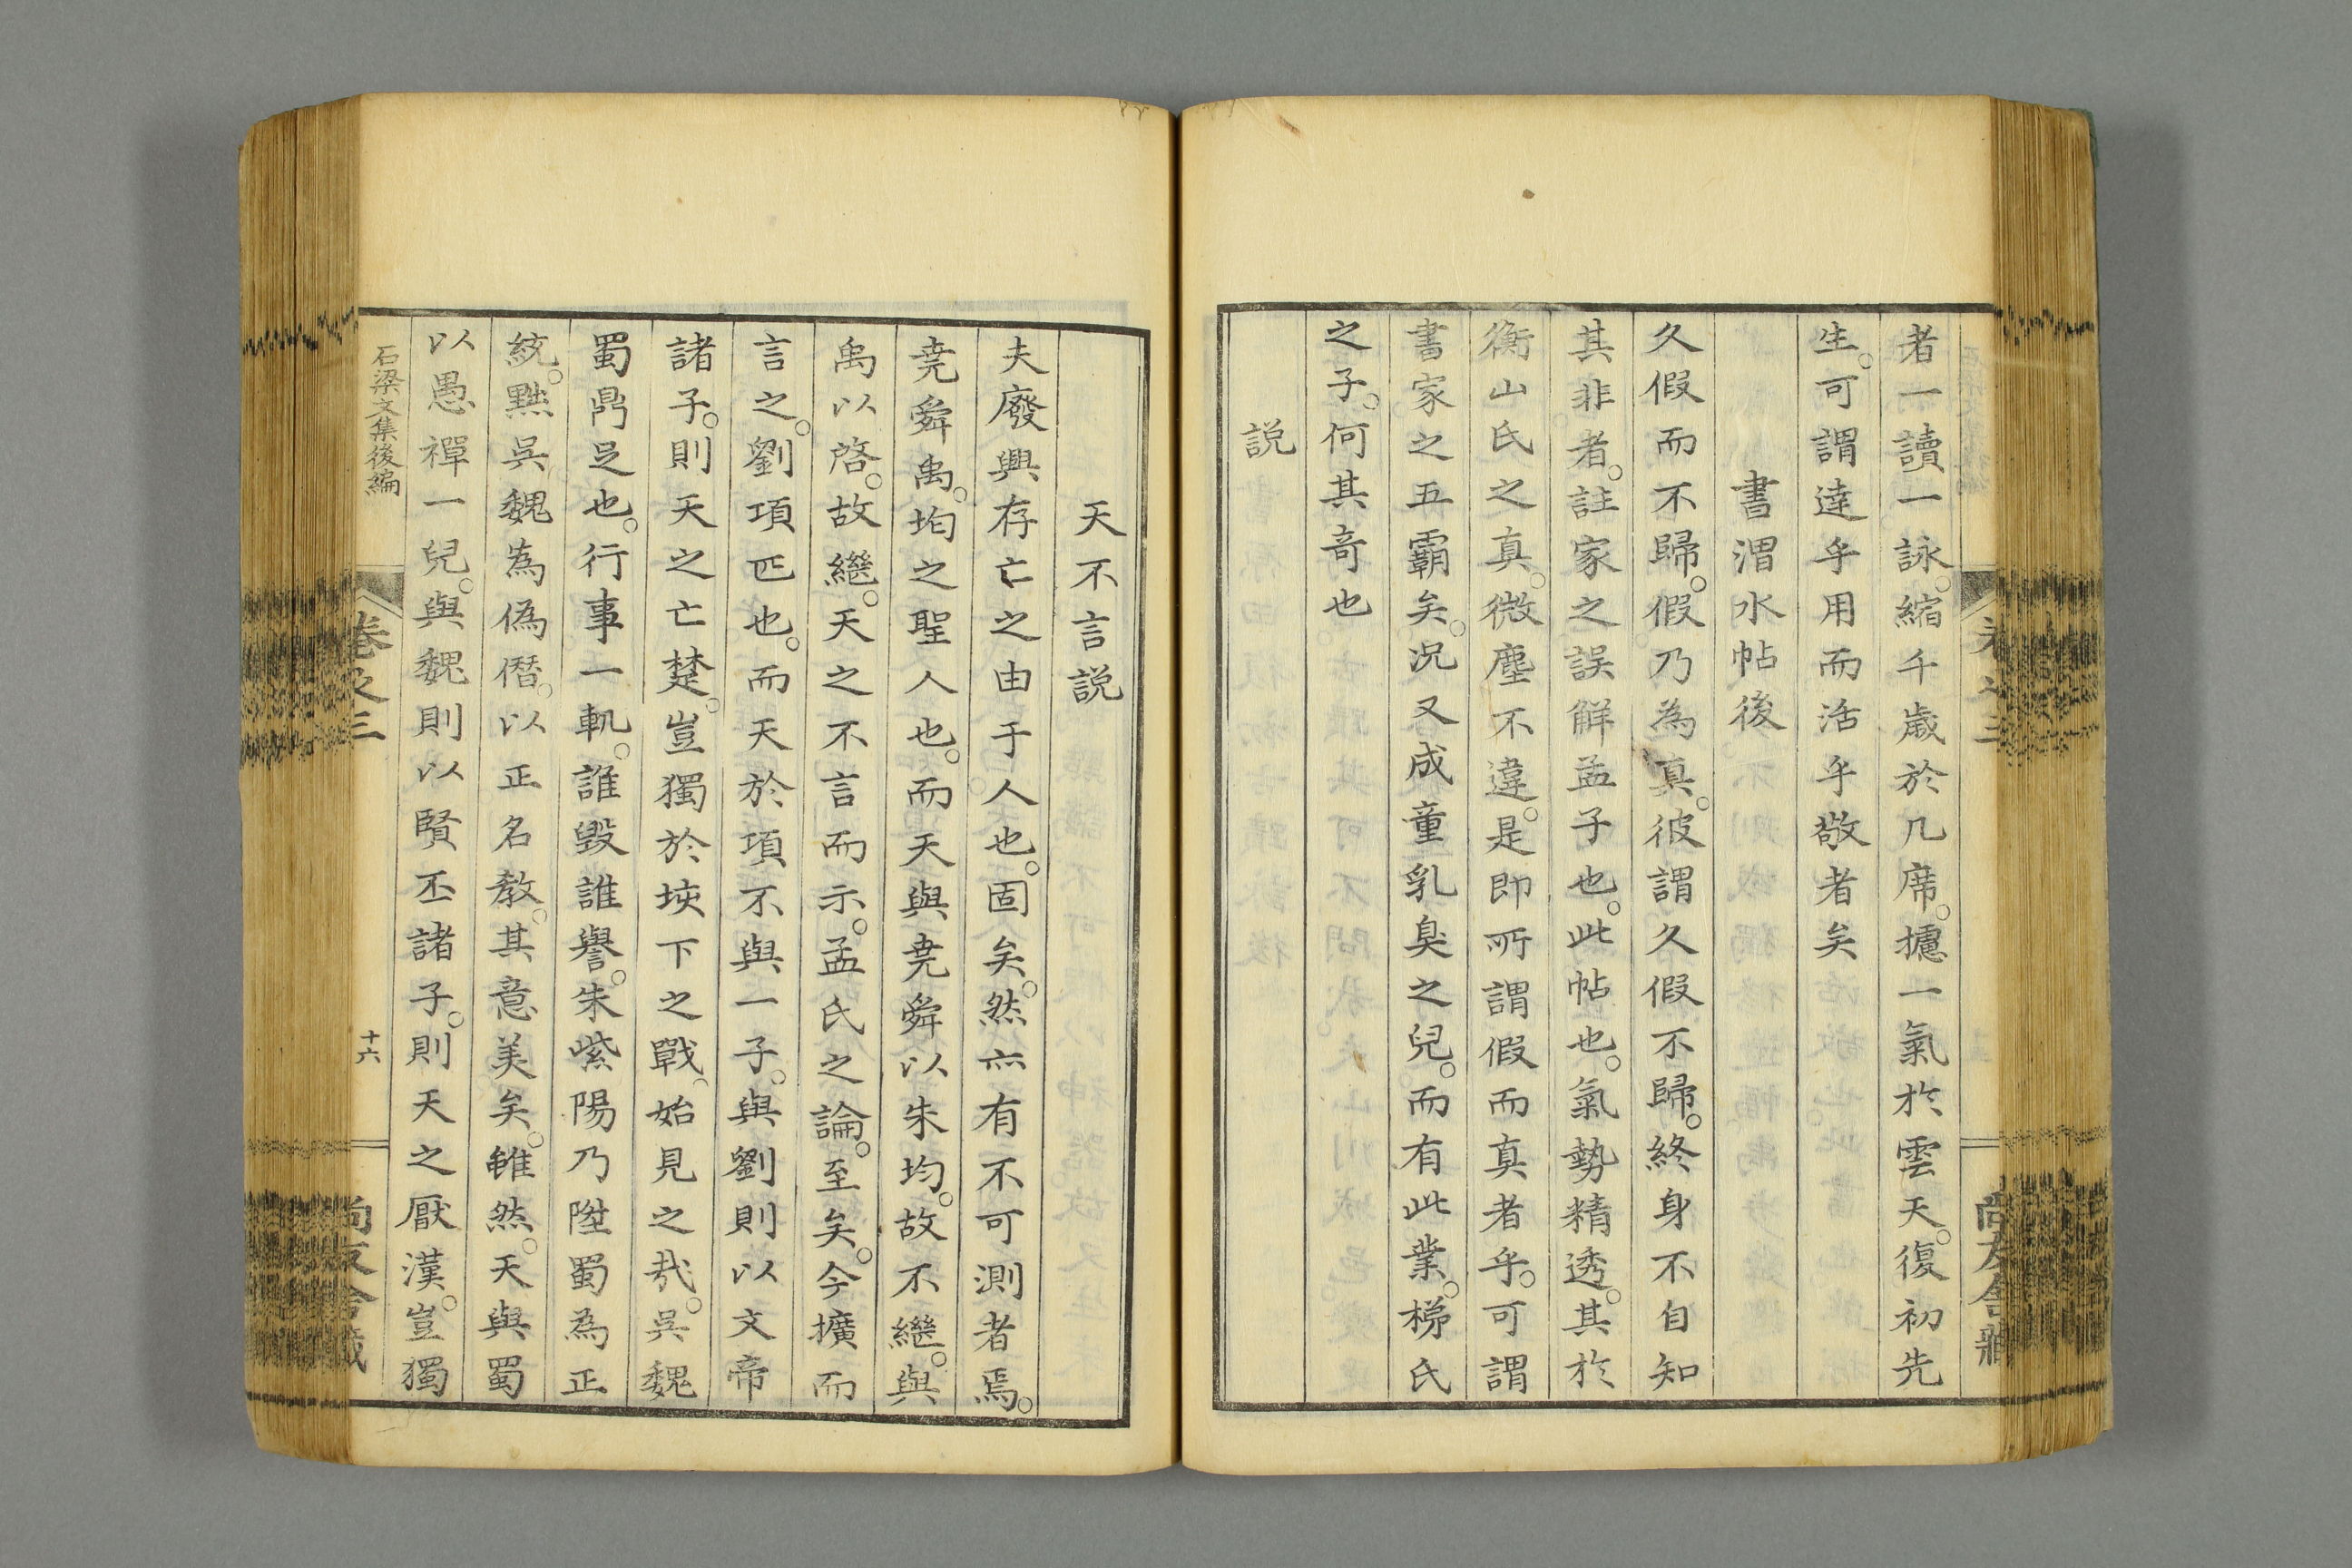 者一讀一詠。縮千歲於几席。攄一氣於雲天。復初先
生。可謂達乎用而活乎敬者矣
書渭水帖後
久假而不歸。假乃為真。彼謂久假不歸。終身不自知
其非者。註家之誤解孟子也。此帖也。氣勢精透。其於
衡山氏之真。微塵不違。是即所謂假而真者乎。可謂
書家之五霸矣。况又成童乳臭之兒。而有此業。梯氏
之子。何其奇也
説
天不言説
夫廢興存亡之由于人也。固矣。然亦有不可測者焉。
堯舜禹。均之聖人也。而天與堯舜以朱均。故不繼。與
禹以啓。故繼。天之不言而示。孟氏之論。至矣。今擴而
言之。劉項匹也。而天於項不與一子。與劉則以文帝
諸子。則天之亡楚。豈獨於垓下之戰。始見之哉。吳魏
蜀鼎足也。行事一軌。誰毀誰譽。朱紫陽乃陞蜀為正
統。黜吳魏為偽僭。以正名教。其意美矣。雖然。天與蜀
以愚禪一兒。與魏則以賢丕諸子。則天之厭漢。豈獨
石梁文集後編
卷之三
十六
尚友舍藏